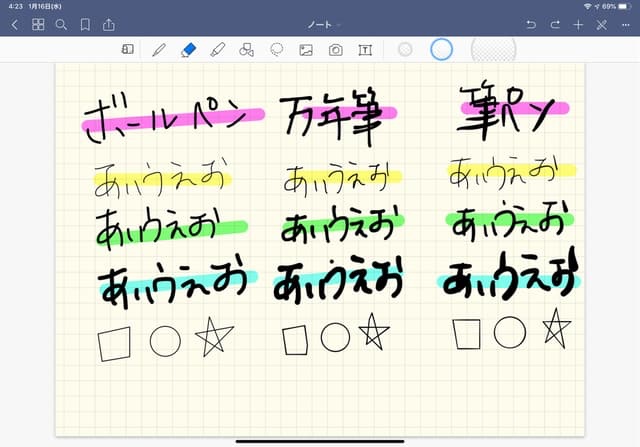 4:23 1月16日(水) 69%
ノート
ボールペン 万年筆 筆ペン
あいうえお あいうえお あいうえお
あいうえお あいうえお あいうえお
あいうえお あいうえお あいうえお